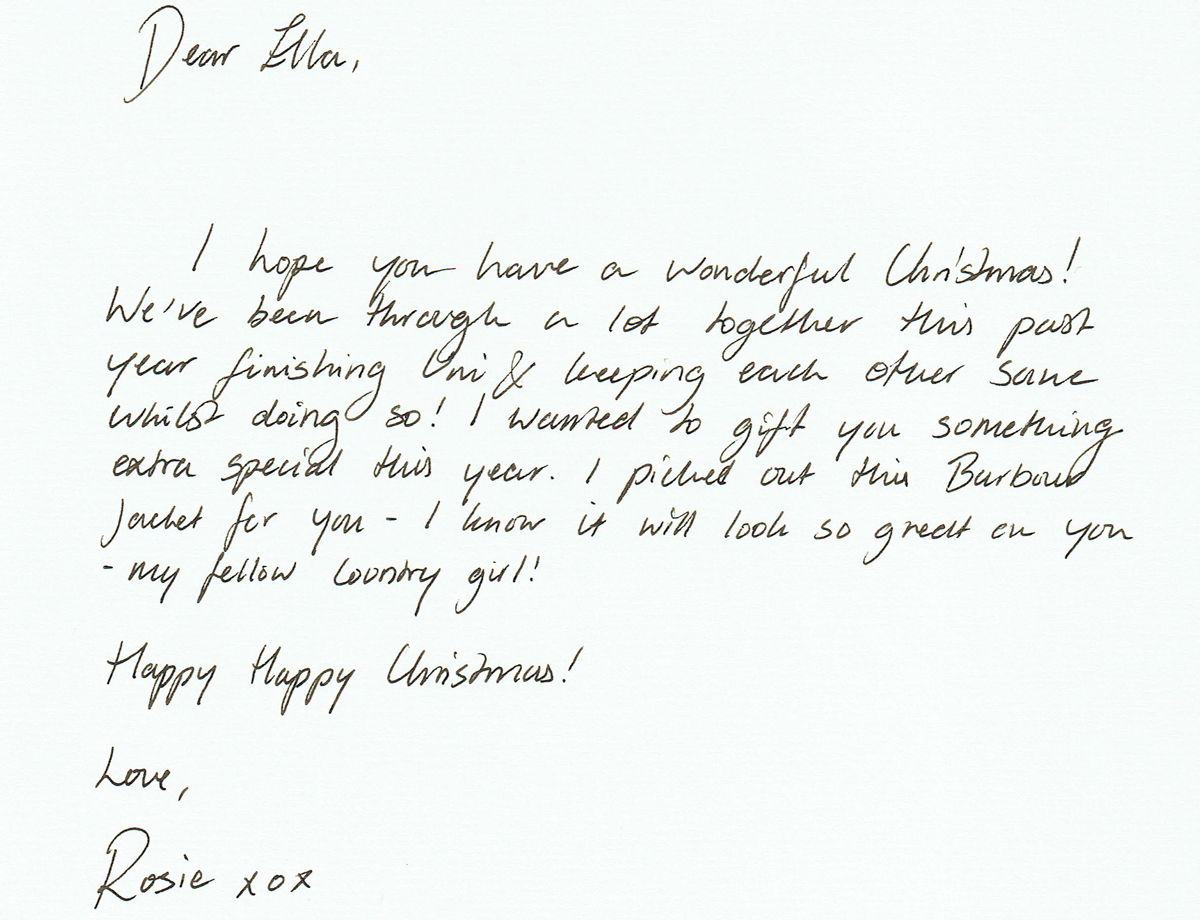 Dear Ella,
I hope you have a wonderful Christmas!
We've been through a lot together this past
year finishing Uni & keeping each other sane
whilst doing so! I wanted to gift you something
extra special this year. I picked out this Barbour
Jacket for you - I know it will look so great on you
- my fellow Country girl!
Happy Happy Christmas!
Love,
Rosie xox